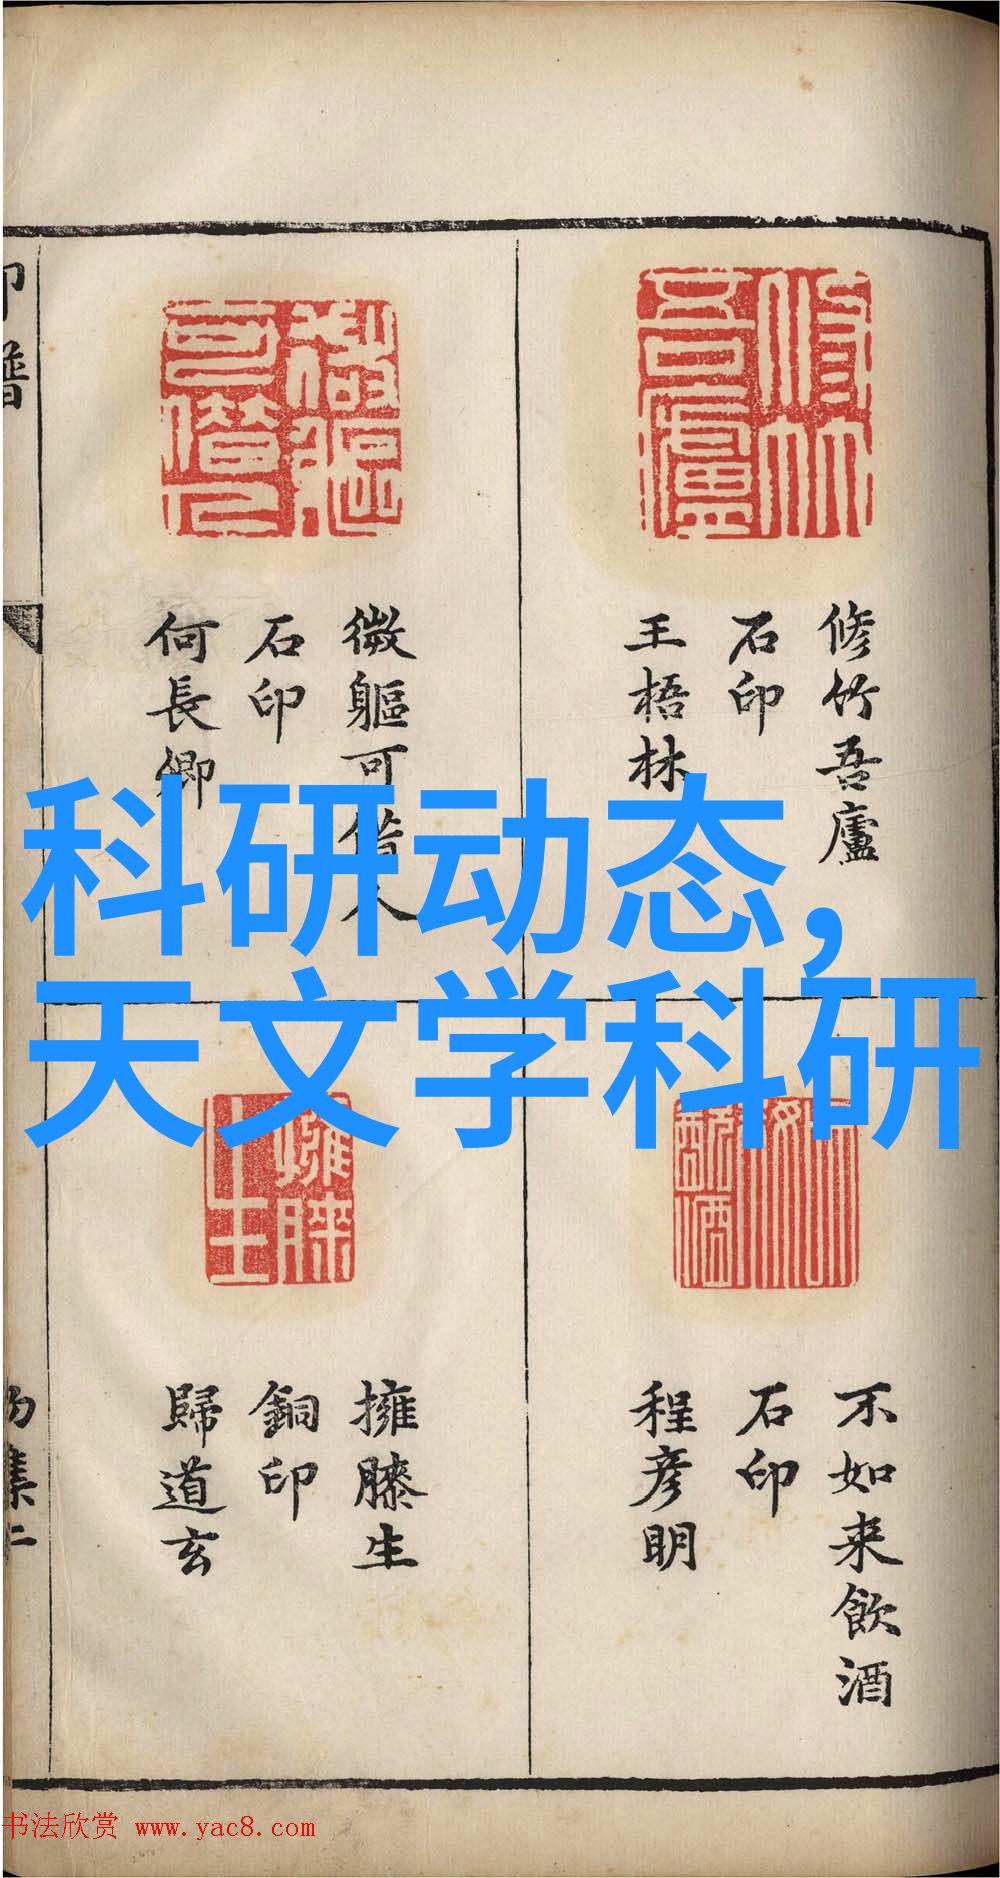 修竹吾廬
石印
王梧林
微軀可借人
石印
何長卿
科研动态,
天文学科研
不如来飲酒
石印
程彦明
擁膝生
銅印
歸道玄
印譜
集二
书法欣赏 www.yac8.com